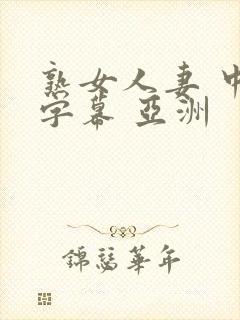 熟女人妻 中
字幕 亞洲
錦瑟華年